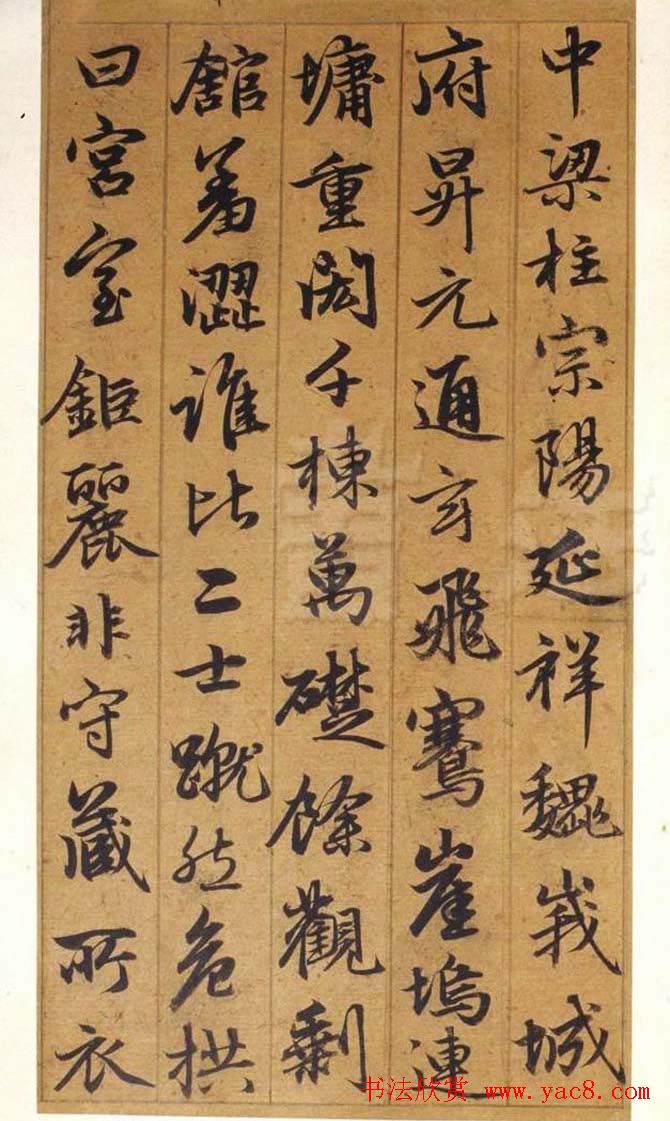 中梁柱宗陽延祥巍峩城
府昇元通玄飛鶱崖塢連
墉重闼千棟萬礎餘觀剩
舘羞澀誰比二士蹴然危拱
曰宮室鉅麗非守藏所衣
书法欣赏 www.yac8.com